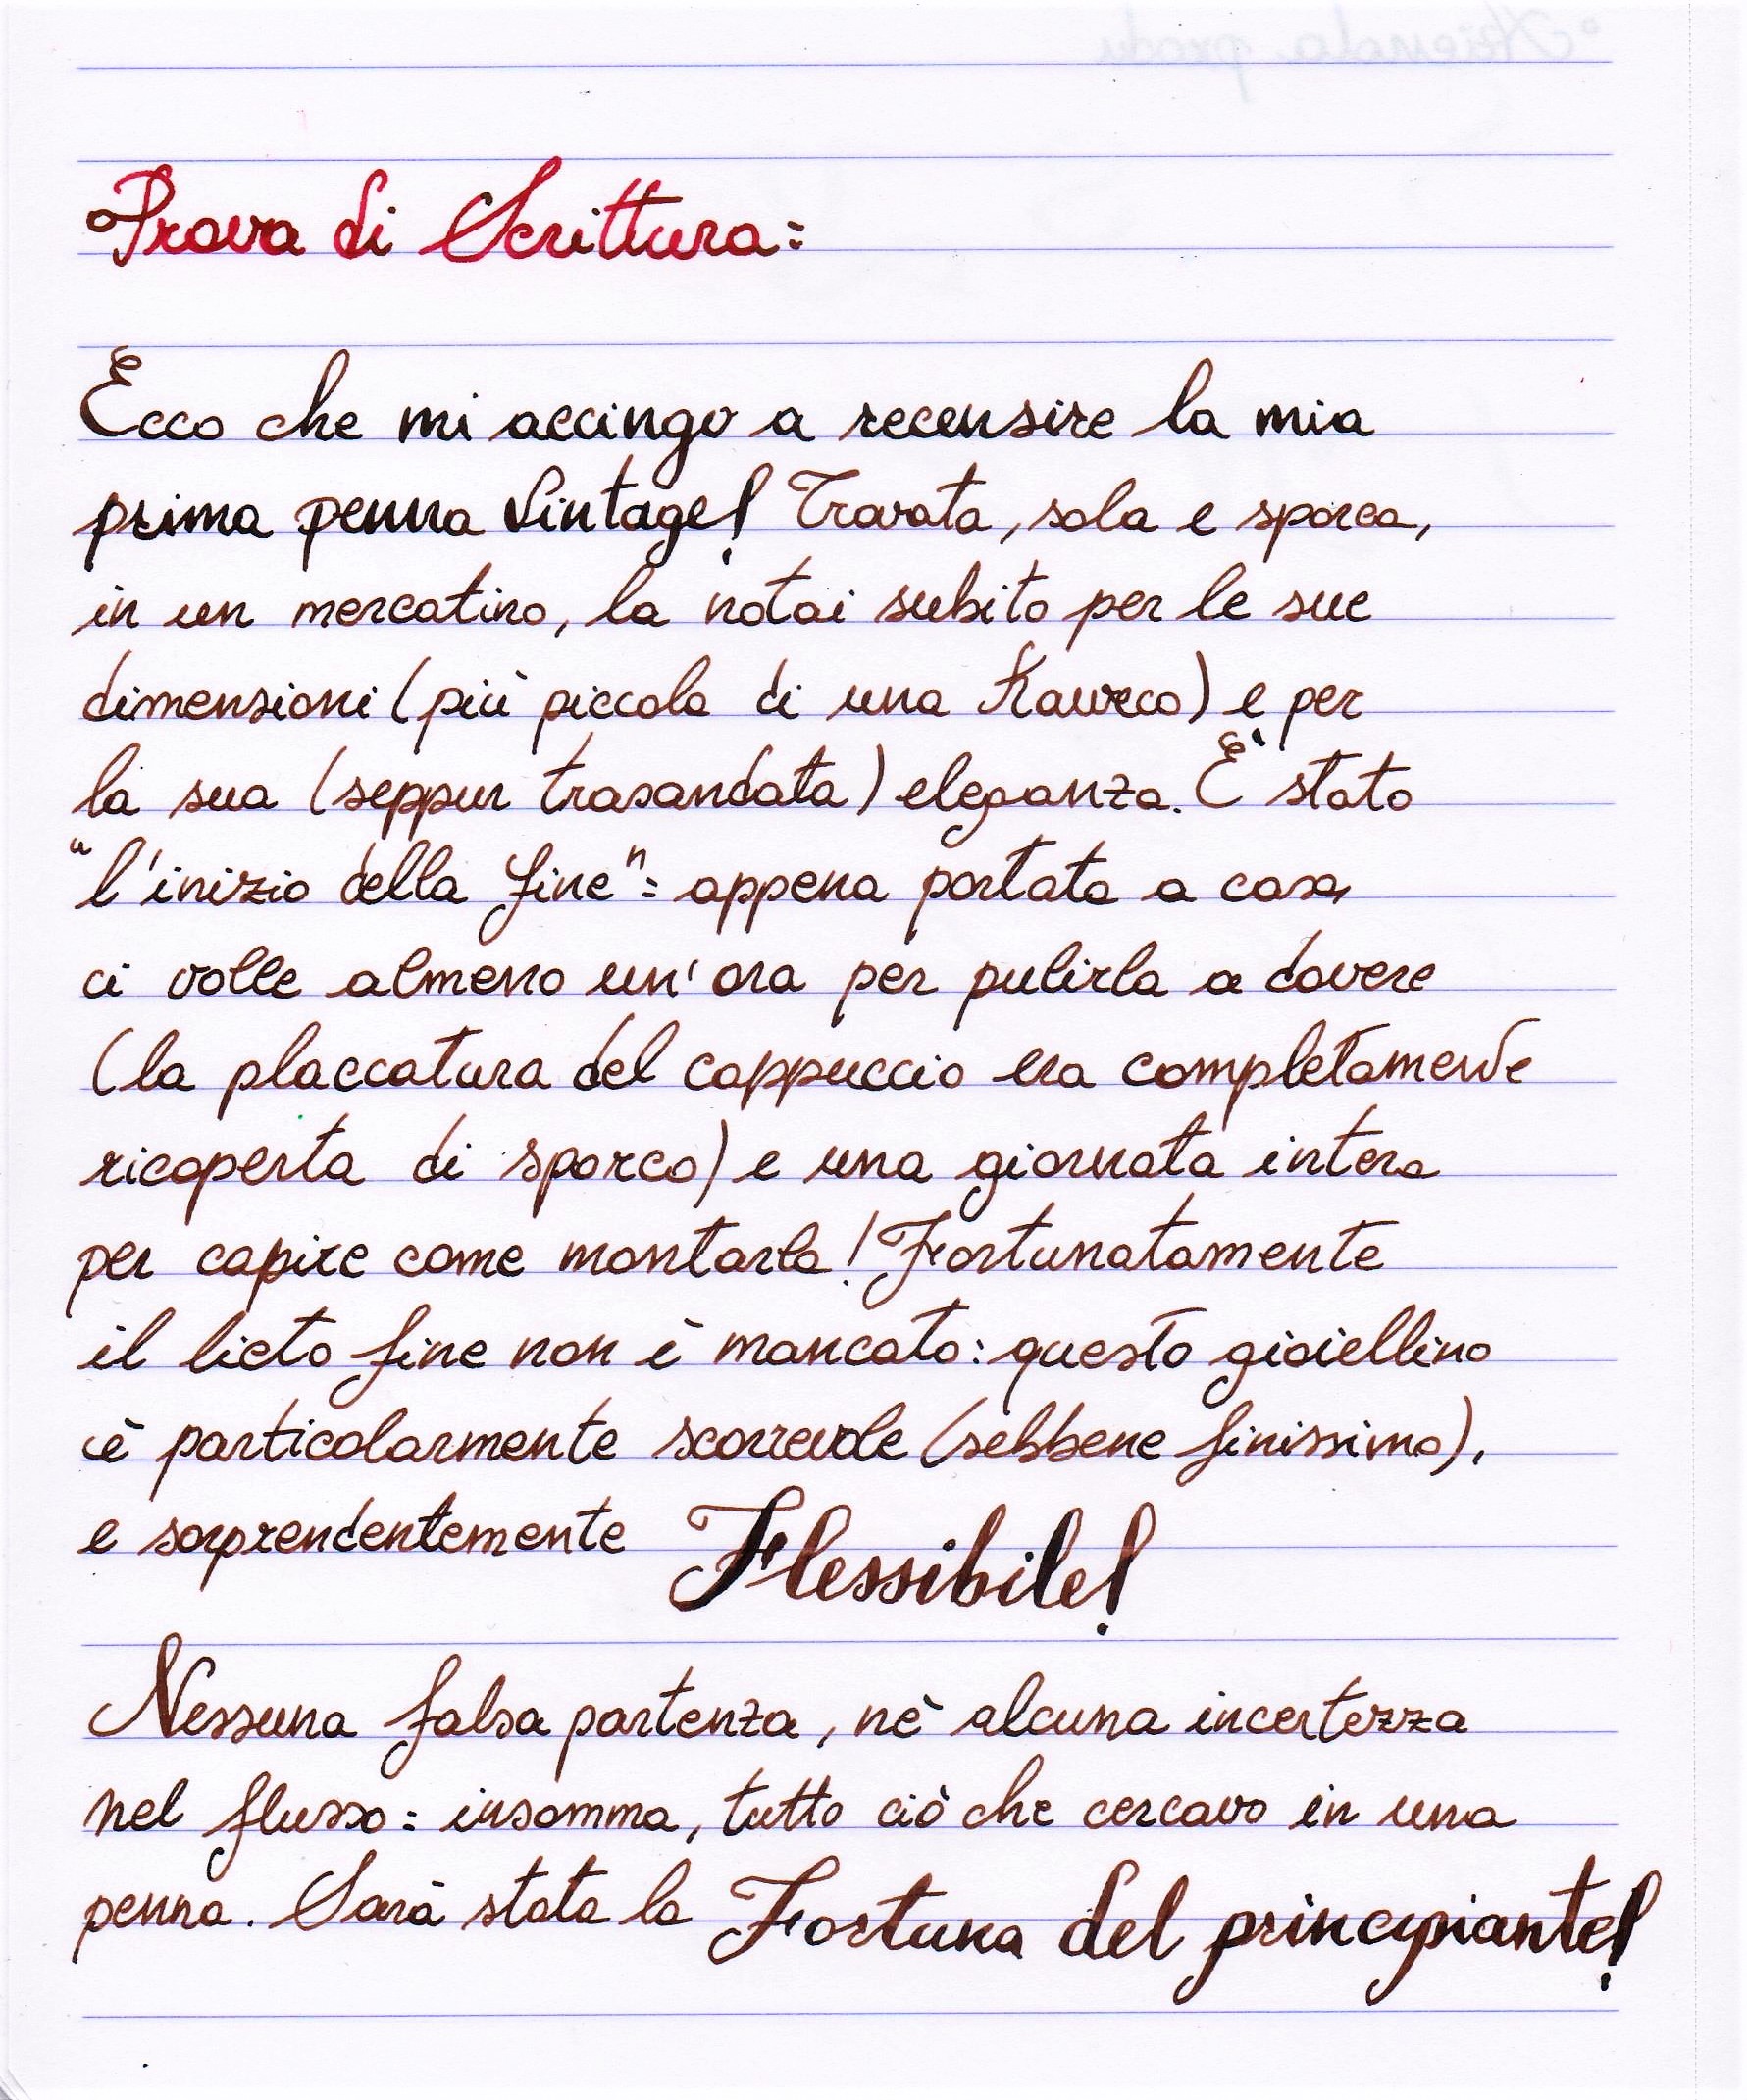 °Prova di Scrittura:
Ecco che mi accingo a recensire la mia
prima penna vintage! Trovata, sola e sporca,
in un mercatino, la notai subito per le sue
dimensioni (più piccola di una Kaweco) e per
la sua (seppur trasandata) eleganza. È stato
"l'inizio della fine": appena portata a casa,
ci volle almeno un'ora per pulirla a dovere
(la placcatura del cappuccio era completamente
ricoperta di sporco) e una giornata intera
per capire come montarla! Fortunatamente
il lieto fine non è mancato: questo gioiellino
è particolarmente scorrevole (sebbene finissimo),
e sorprendentemente Flessibile!
Nessuna falsa partenza, nè alcuna incertezza
nel flusso: insomma, tutto ciò che cercavo in una
penna. Sarà stata la Fortuna del principiante!